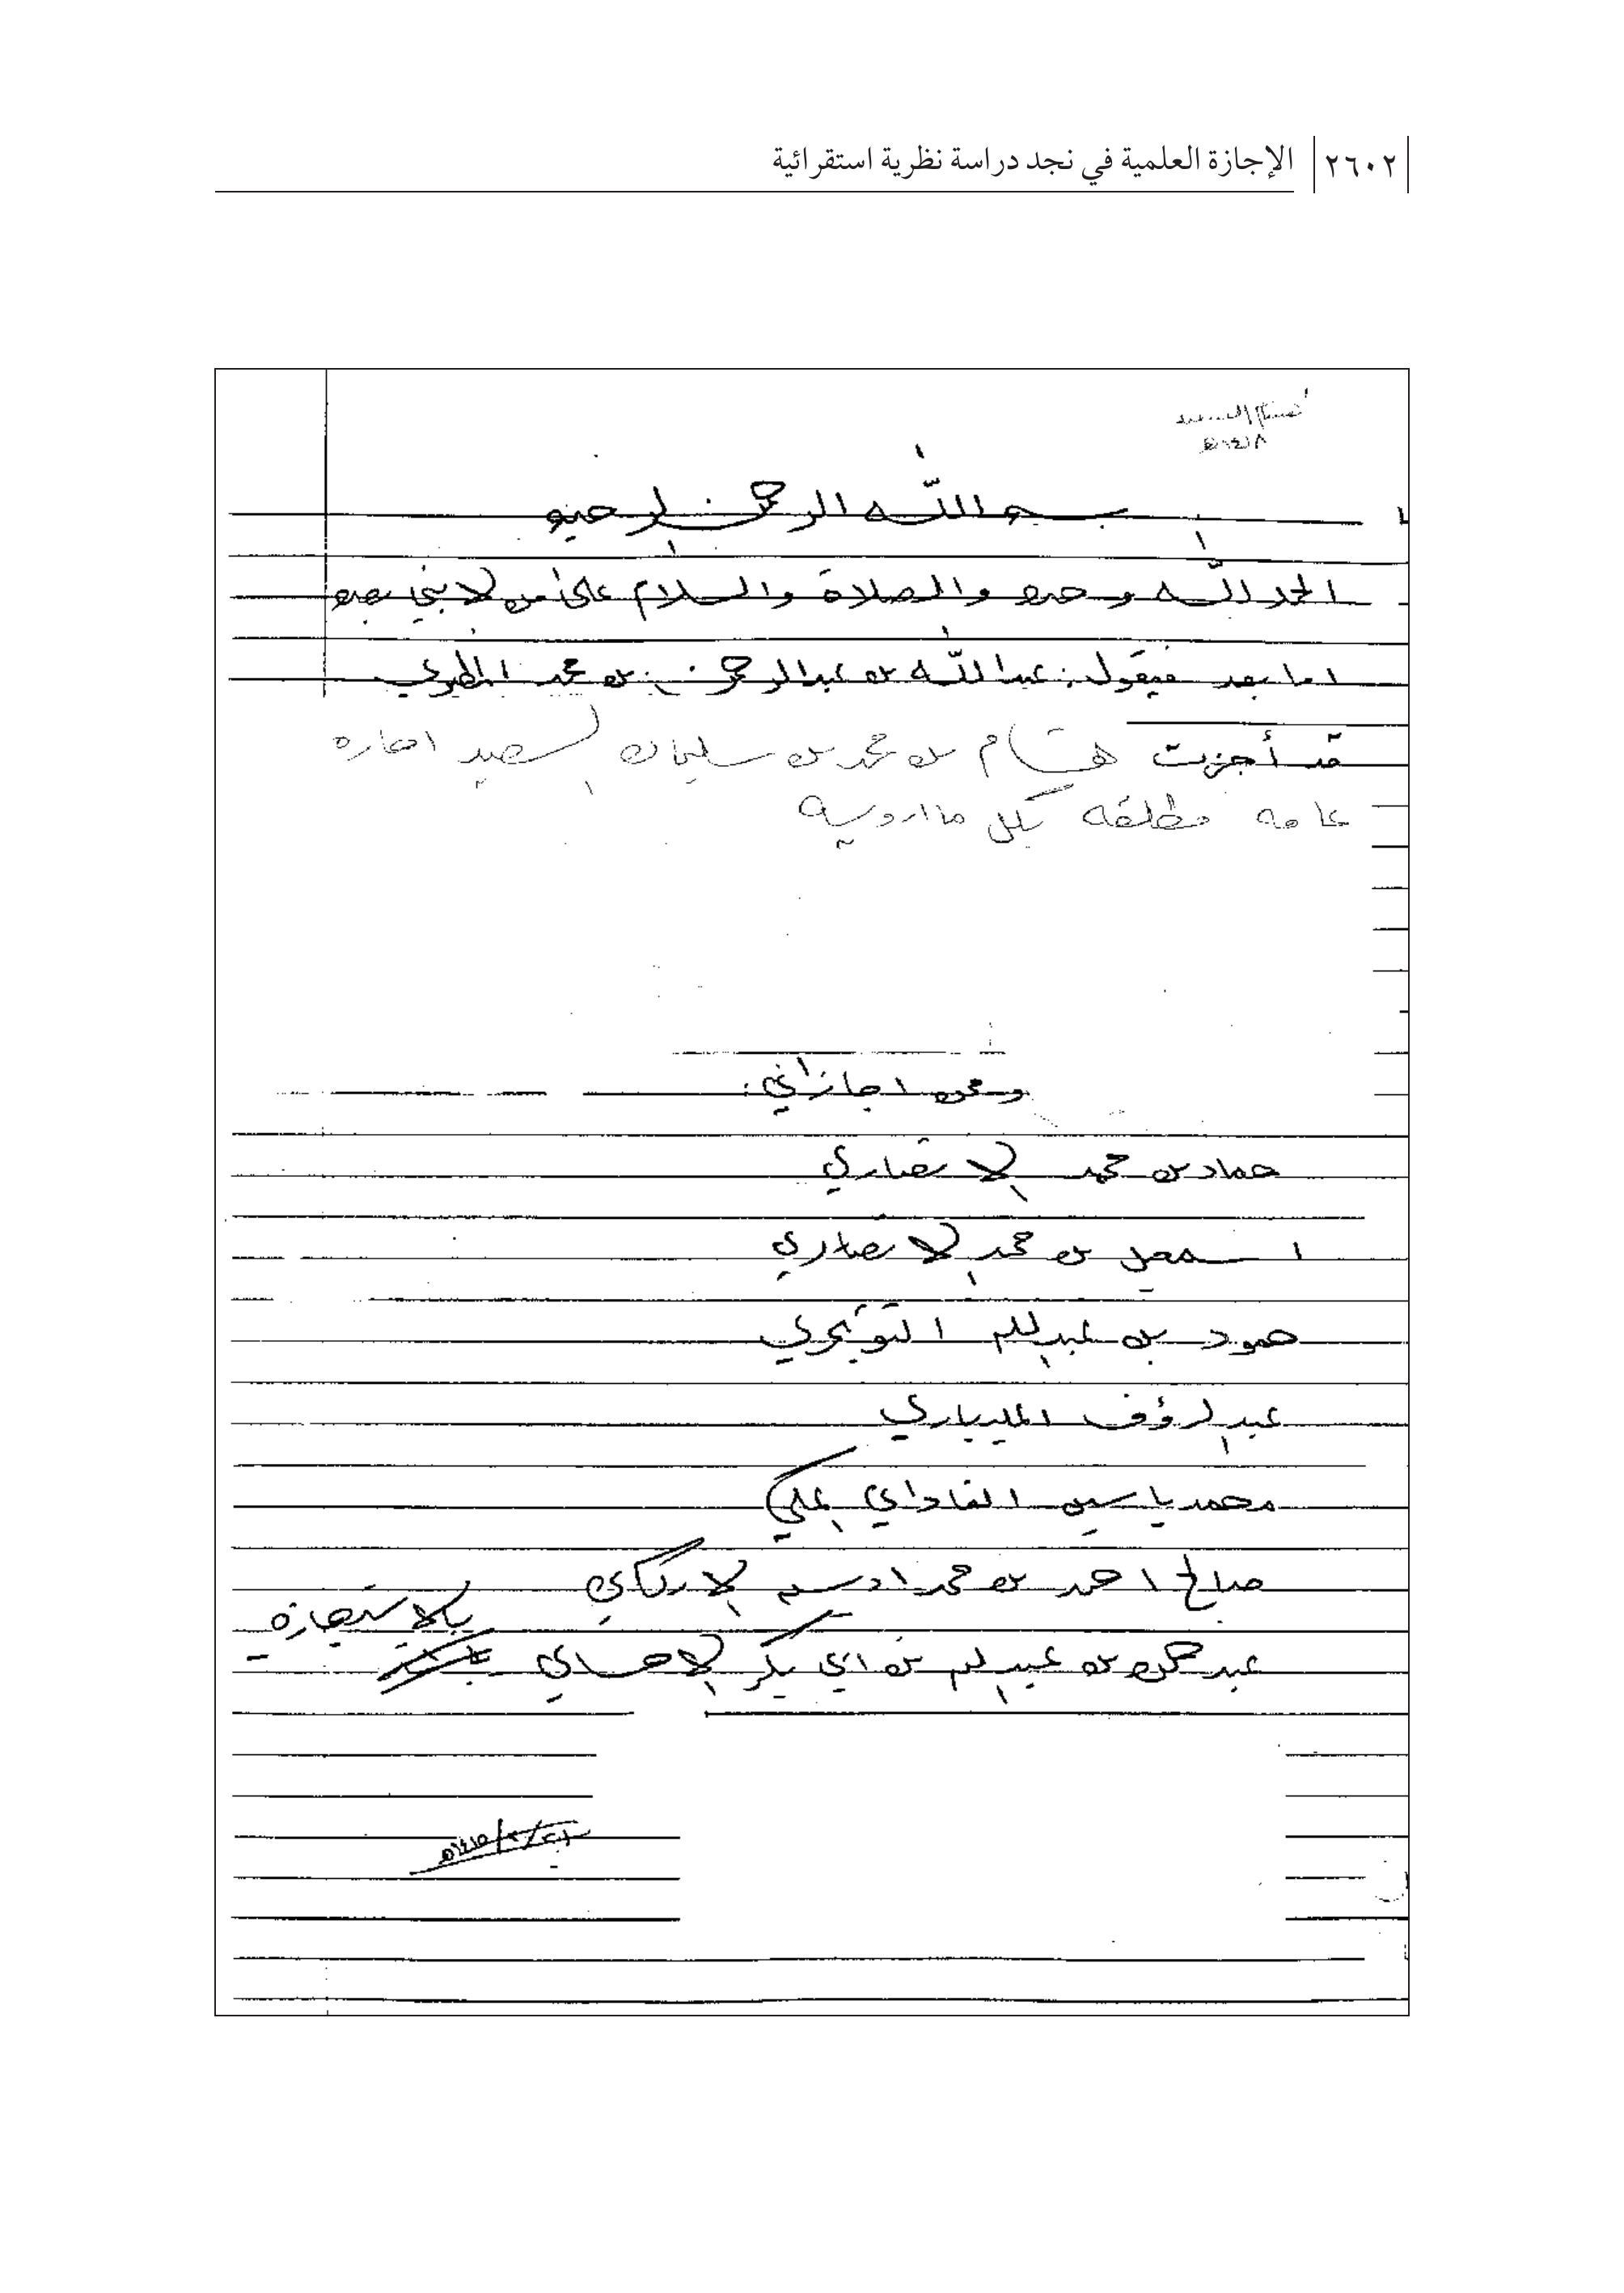 ٢٦٠٢ الإجازة العلمية في نجد دراسة نظرية استقرائية
هشام السعيد
بسم الله الرحمن الرحيم
الحمد لله وحده والصلاة والسلام على من لا نبي بعده
اما بعد فيقول: عبدالله بن عبدالرحمن بن محمد
قد أجزت هشام بن محمد بن سليمان السعيد اجازه
عامه مطلقه بكل ما ارويه
وممن اجازني:
حماد بن محمد الانصاري
اسمعيل بن محمد الانصاري
حمود بن عبدالله التويجري
عبدالرؤف المليباري
محمد ياسين الفاداني المكي
صالح احمد بن محمد ادريس الاركاني
بالاستجازة
عبدالرحمن بن عبدالله بن ابي بكر الاحسائي